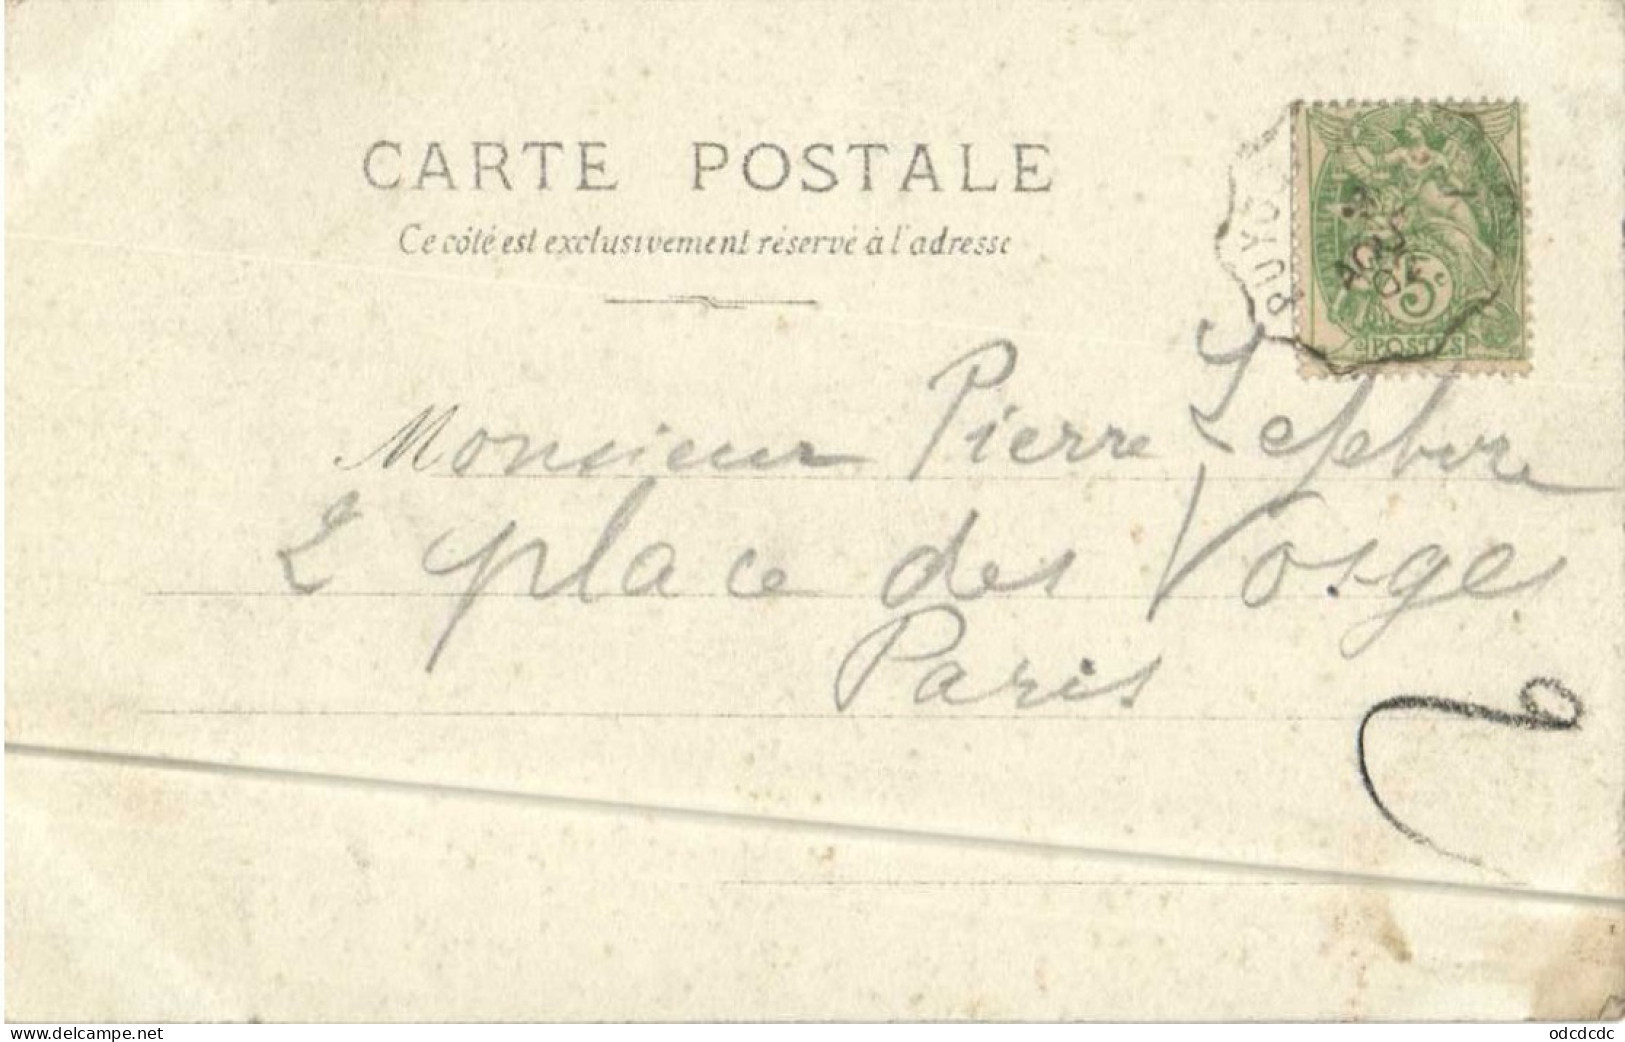 CARTE POSTALE
Ce côté est exclusivement réservé à l'adresse
PUYO
AOU
05
5c
POSTES
Monsieur Pierre Lefebvre
2 place des Vosges
Paris
www.delcampe.net
odcdcdc